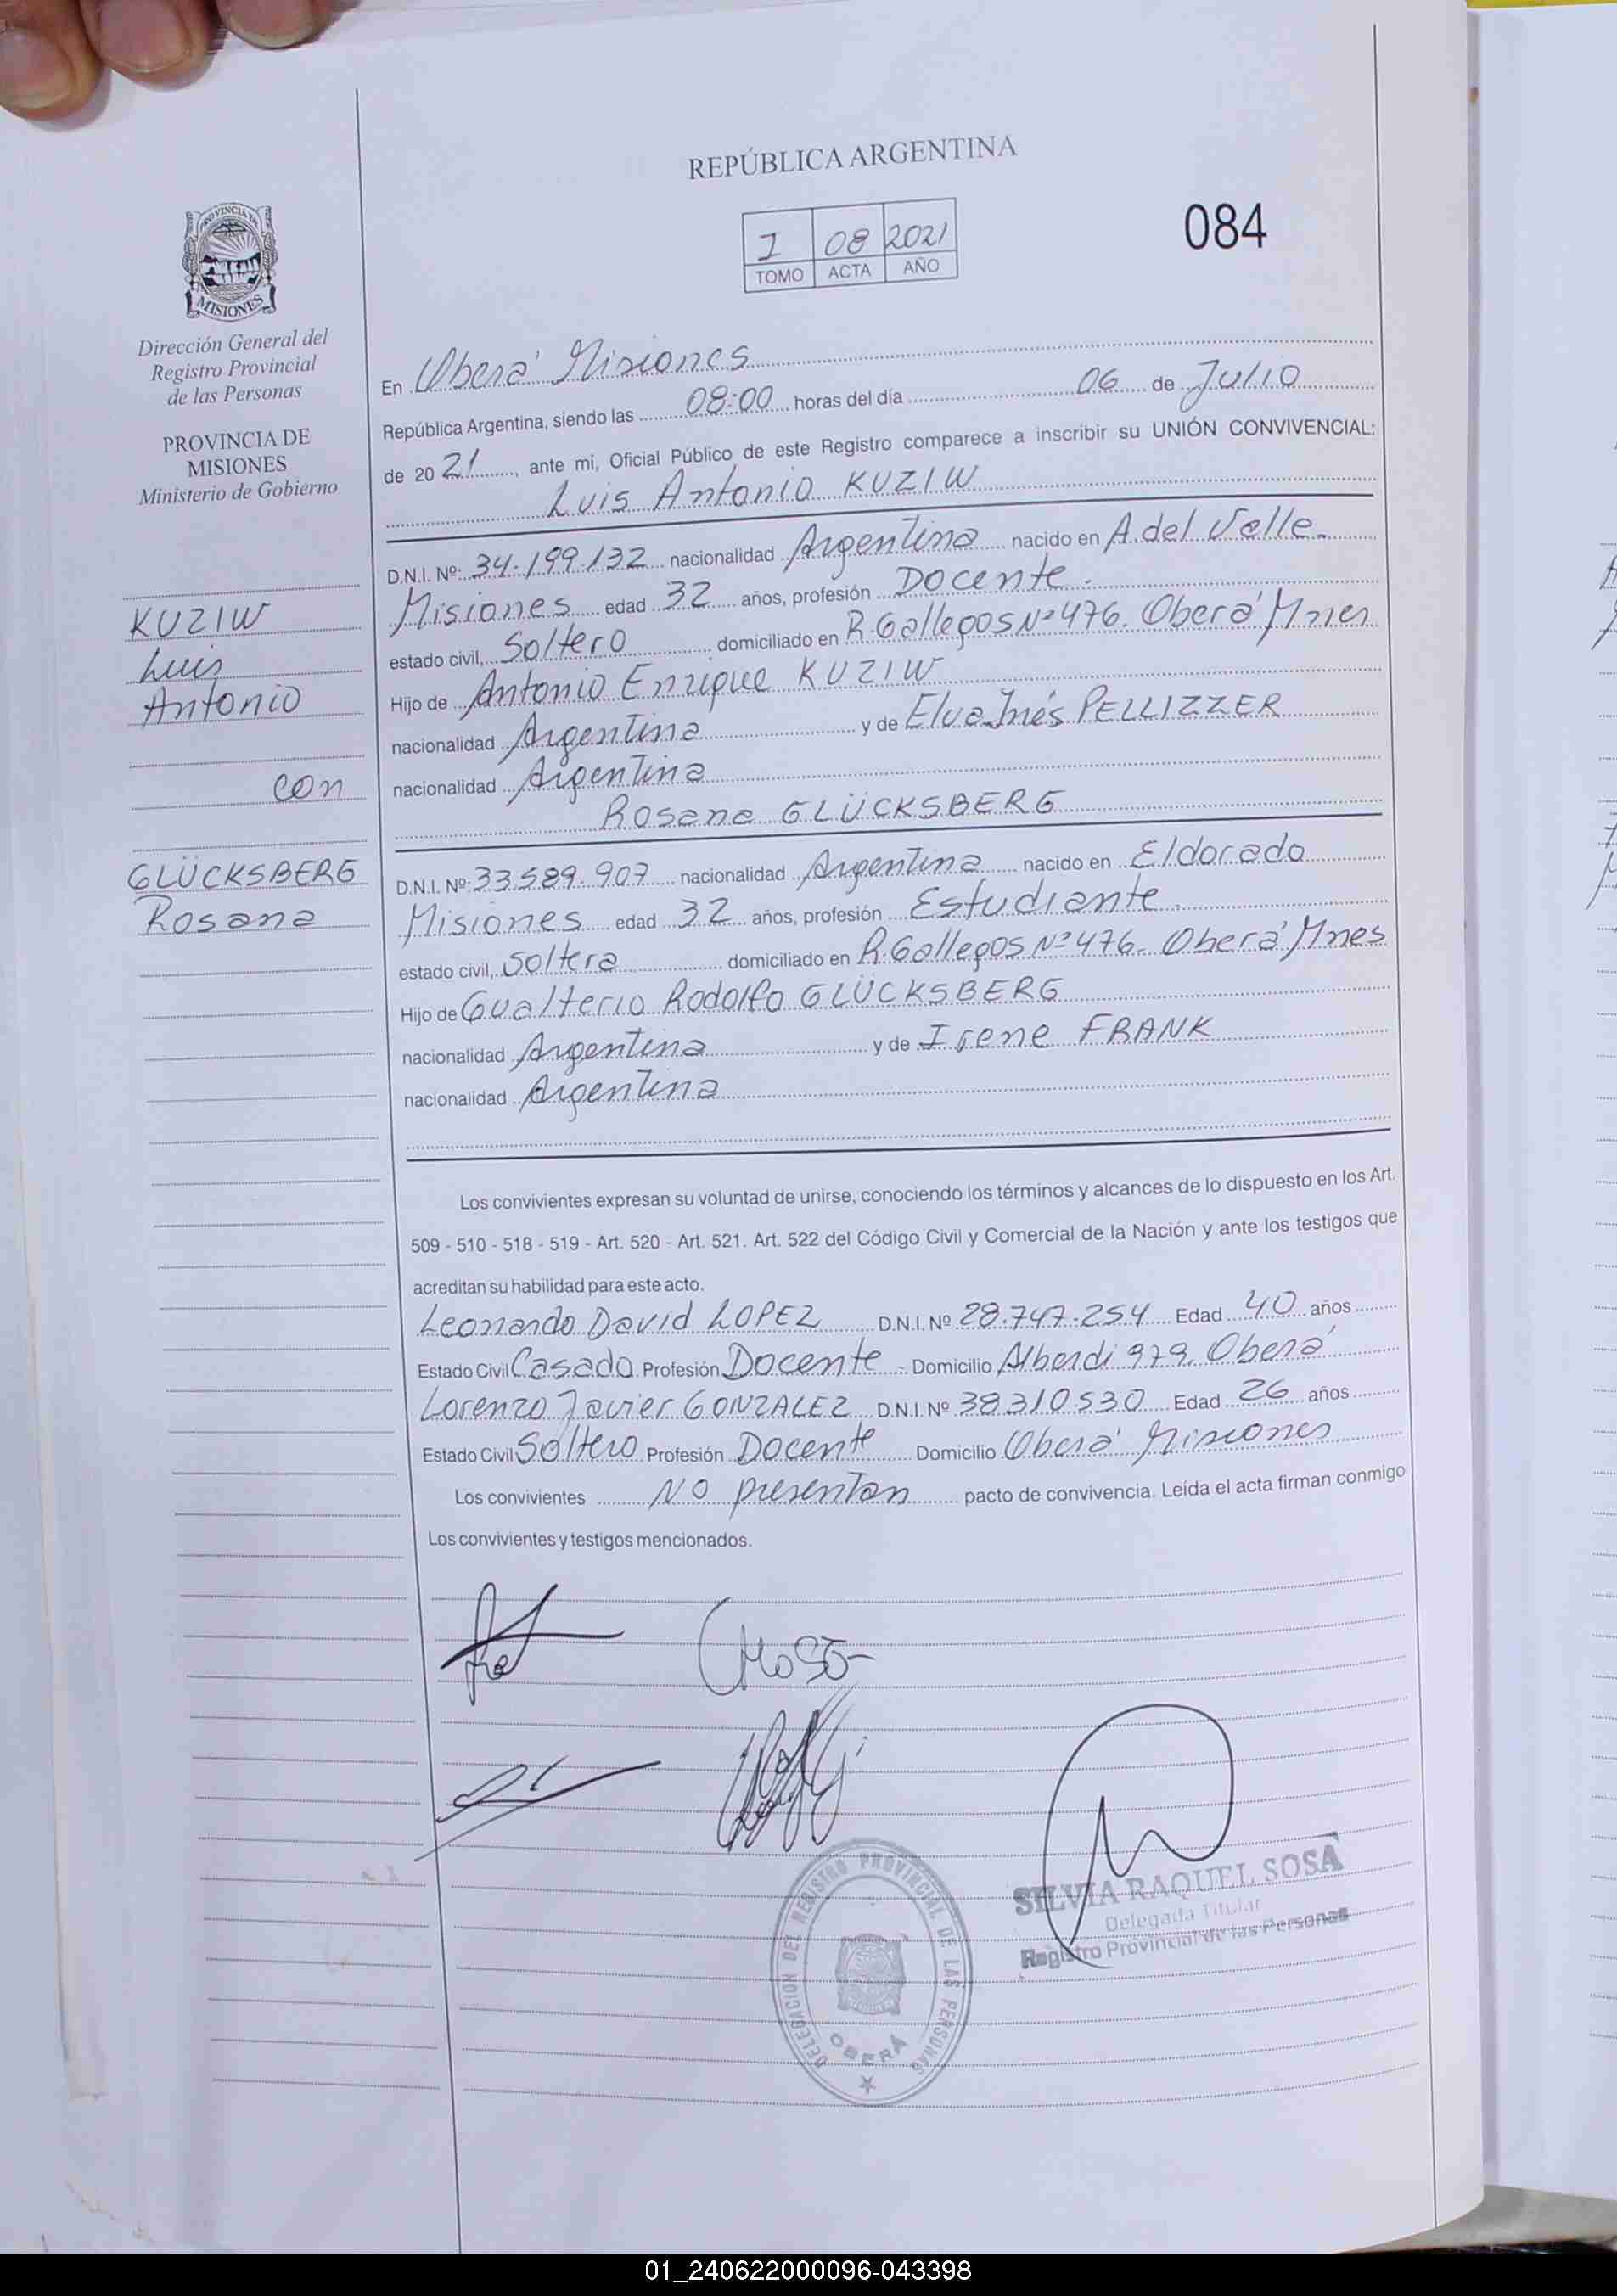 REPÚBLICA ARGENTINA
084
1 08 2021
TOMO ACTA AÑO
PROVINCIA DE
MISIONES
Dirección General del
Registro Provincial
de las Personas
PROVINCIA DE
MISIONES
Ministerio de Gobierno
KUZIW
Luis
Antonio
con
GLÜCKSBERG
Rosana
En Oberá Misiones
República Argentina, siendo las 08:00 horas del día 06 de Julio
de 2021, ante mi, Oficial Público de este Registro comparece a inscribir su UNIÓN CONVIVENCIAL:
Luis Antonio KUZIW
D.N.I. Nº: 34.199.132 nacionalidad Argentina nacido en A. del Valle.
Misiones edad 32 años, profesión Docente.
estado civil, Soltero domiciliado en R. Gallegos Nº 476. Oberá Mnes
Hijo de Antonio Enrique KUZIW
nacionalidad Argentina y de Elva Inés PELLIZZER
nacionalidad Argentina
Rosana GLÜCKSBERG
D.N.I. Nº: 33.589.907 nacionalidad Argentina nacido en Eldorado
Misiones edad 32 años, profesión Estudiante.
estado civil, Soltera domiciliado en R. Gallegos Nº 476. Oberá Mnes
Hijo de Gualterio Rodolfo GLÜCKSBERG
nacionalidad Argentina y de Irene FRANK
nacionalidad Argentina
Los convivientes expresan su voluntad de unirse, conociendo los términos y alcances de lo dispuesto en los Art.
509 - 510 - 518 - 519 - Art. 520 - Art. 521. Art. 522 del Código Civil y Comercial de la Nación y ante los testigos que
acreditan su habilidad para este acto.
Leonardo David LOPEZ D.N.I. Nº 28.747.254 Edad 40 años
Estado Civil Casado Profesión Docente - Domicilio Alberdi 979. Oberá
Lorenzo Javier GONZALEZ D.N.I. Nº 38310530 Edad 26 años
Estado Civil Soltero Profesión Docente Domicilio Oberá Misiones
Los convivientes NO presentan pacto de convivencia. Leída el acta firman conmigo
Los convivientes y testigos mencionados.
SILVIA RAQUEL SOSA
Delegada Titular
Registro Provincial de las Personas
DELEGACION DEL REGISTRO PROVINCIAL DE LAS PERSONAS
OBERA
01_240622000096-043398